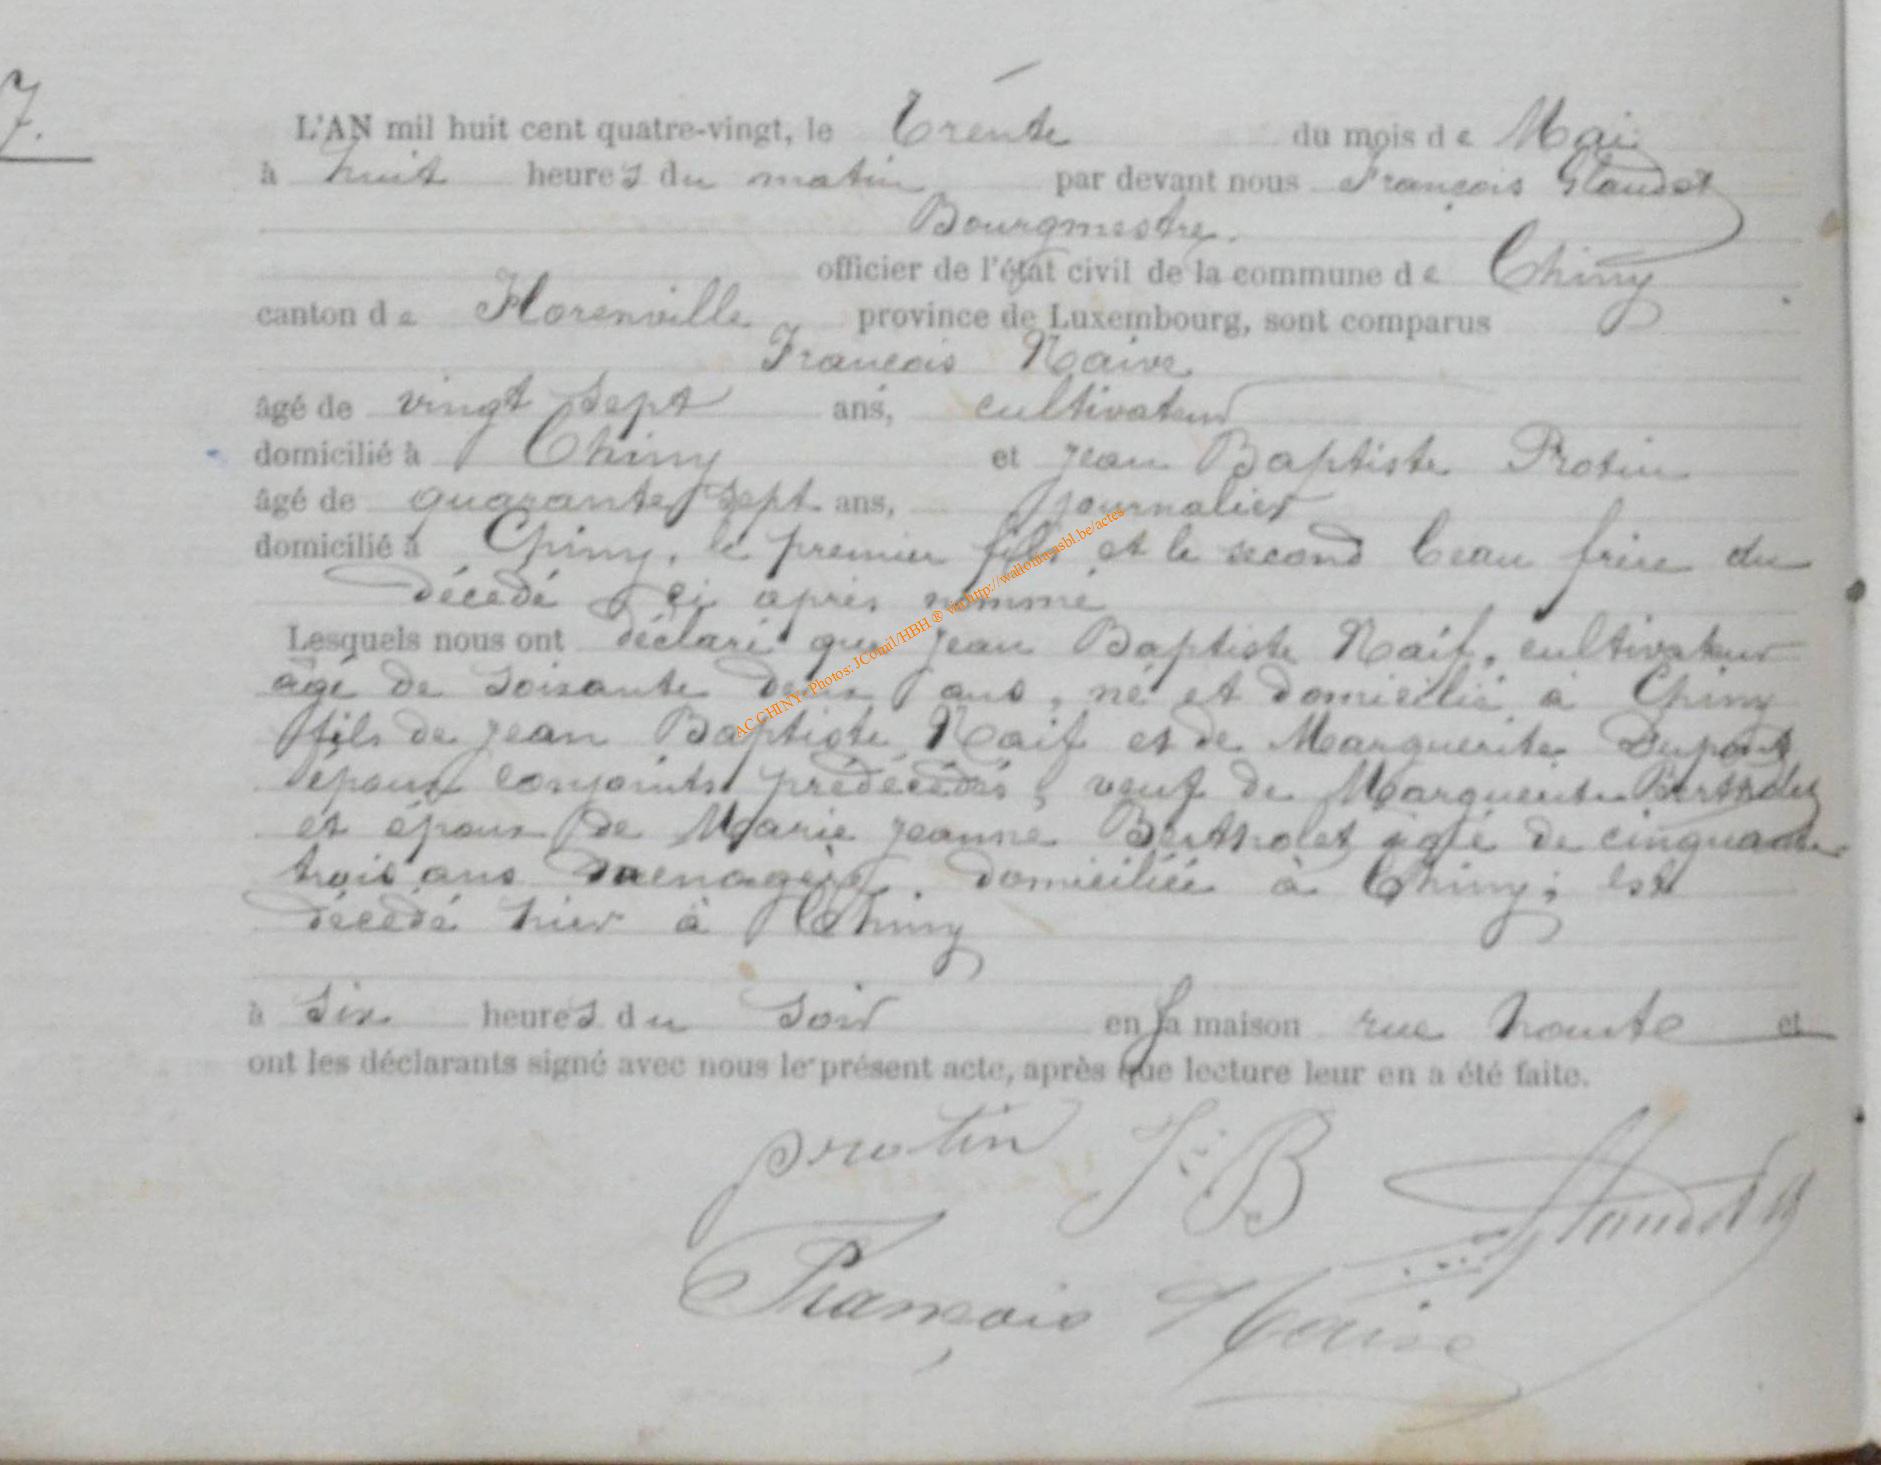 7.
L'AN mil huit cent quatre-vingt, le trente du mois de Mai
à huit heures du matin par devant nous François Glaudot
Bourgmestre.
officier de l'état civil de la commune de Chiny
canton de Florenville province de Luxembourg, sont comparus
Francois Naive
âgé de vingt sept ans, cultivateur
domicilié à Chiny et Jean Baptiste Protin
âgé de quarante sept ans, journalier
domicilié à Chiny, le premier fils et le second beau frère du
décédé ci après nommé
Lesquels nous ont déclaré que Jean Baptiste Naif, cultivateur
âgé de soixante deux ans, né et domicilié à Chiny
fils de Jean Baptiste Naif et de Marguerite Dupont
époux conjoints prédécédés, veuf de Marguerite Bertholet
et époux de Marie Jeanne Bertholet âgé de cinquante
trois ans menagère, domiciliée à Chiny; est
décédé hier à Chiny
à six heures du soir en sa maison rue haute et
ont les déclarants signé avec nous le présent acte, après que lecture leur en a été faite.
protin J: B
Glaudot
François Naive
AC CHINY - Photos: JComil/HBH ® via http://wallonia-asbl.be/actes